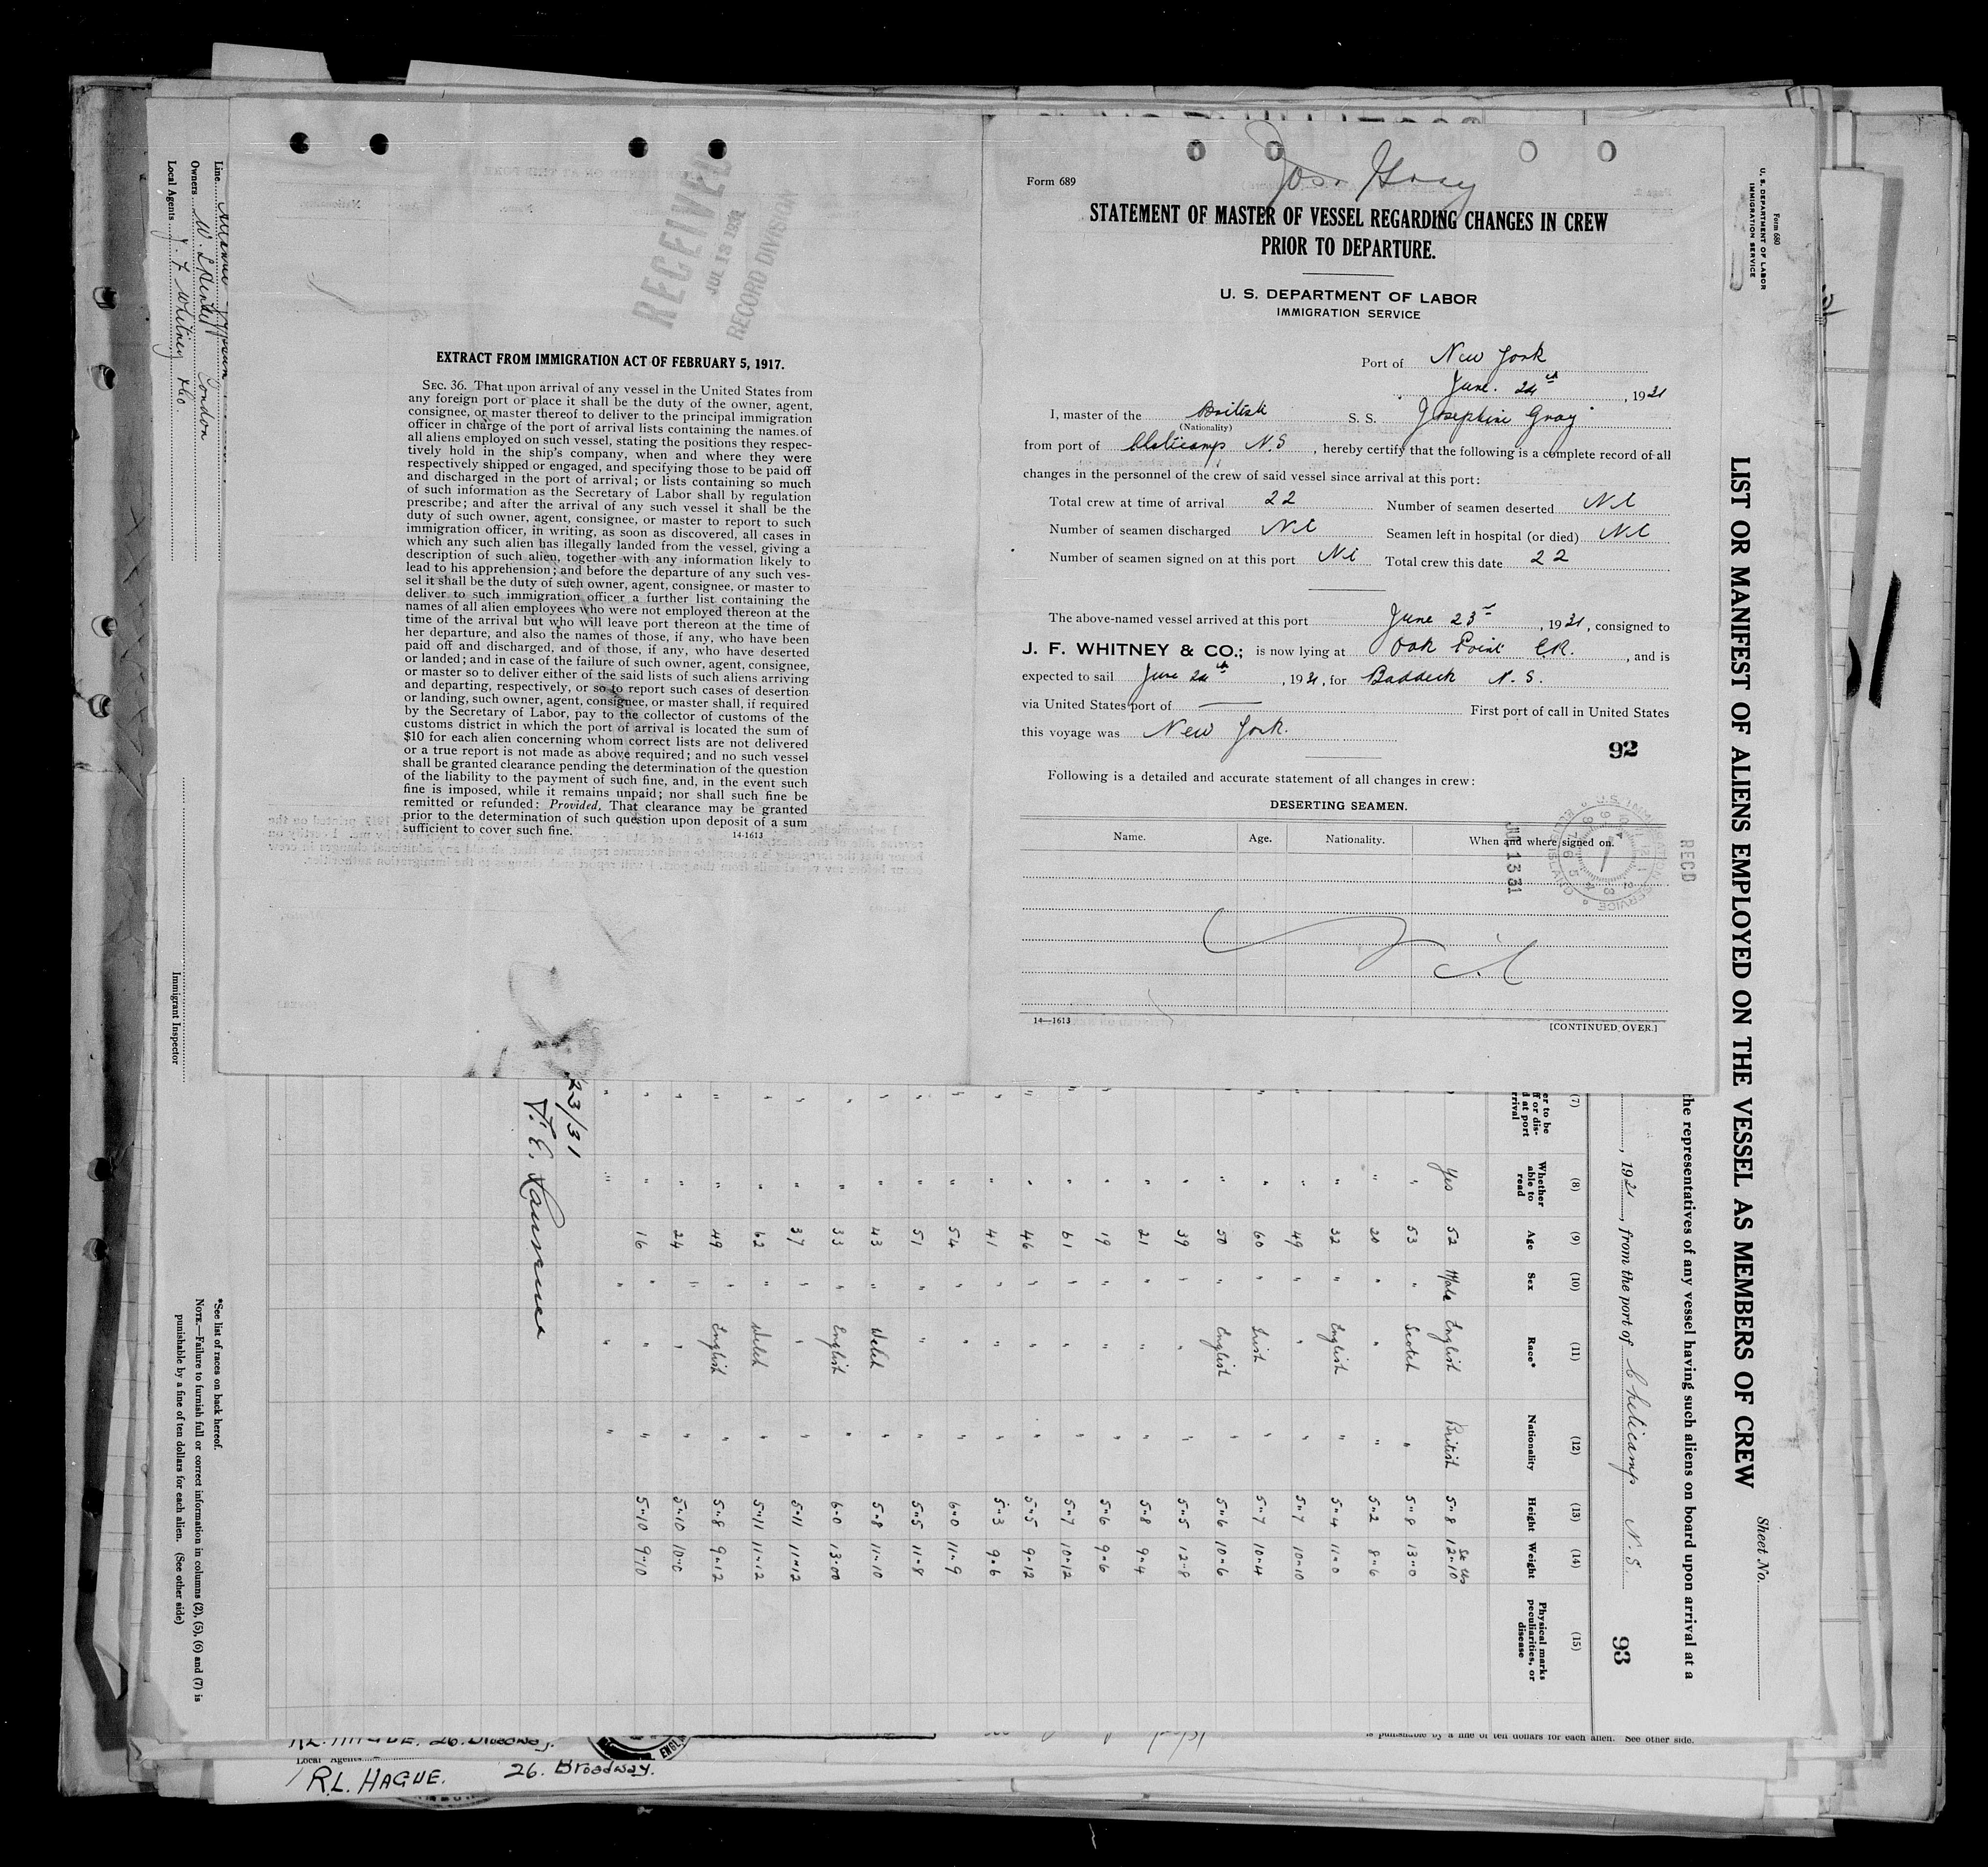 Form 689
Jos. Gray
STATEMENT OF MASTER OF VESSEL REGARDING CHANGES IN CREW
PRIOR TO DEPARTURE.
U. S. DEPARTMENT OF LABOR
IMMIGRATION SERVICE
Port of New York
June. 24th, 1931
I, master of the British S. S. Josephine Gray
(Nationality)
from port of Cheticamp N.S, hereby certify that the following is a complete record of all
changes in the personnel of the crew of said vessel since arrival at this port:
Total crew at time of arrival 22 Number of seamen deserted Nil
Number of seamen discharged Nil Seamen left in hospital (or died) Nil
Number of seamen signed on at this port Nil Total crew this date 22
The above-named vessel arrived at this port June 23rd, 1931, consigned to
J. F. WHITNEY & CO.; is now lying at Oak Point E.R., and is
expected to sail June 24th, 1931, for Baddeck N. S.
via United States port of — First port of call in United States
this voyage was New York.
92
Following is a detailed and accurate statement of all changes in crew:
DESERTING SEAMEN.
Name. Age. Nationality. When and where signed on.
Nil
14—1613 [CONTINUED OVER.]
REC'D
RECEIVED
JUL 13 1931
RECORD DIVISION
EXTRACT FROM IMMIGRATION ACT OF FEBRUARY 5, 1917.
SEC. 36. That upon arrival of any vessel in the United States from
any foreign port or place it shall be the duty of the owner, agent,
consignee, or master thereof to deliver to the principal immigration
officer in charge of the port of arrival lists containing the names of
all aliens employed on such vessel, stating the positions they respec-
tively hold in the ship's company, when and where they were
respectively shipped or engaged, and specifying those to be paid off
and discharged in the port of arrival; or lists containing so much
of such information as the Secretary of Labor shall by regulation
prescribe; and after the arrival of any such vessel it shall be the
duty of such owner, agent, consignee, or master to report to such
immigration officer, in writing, as soon as discovered, all cases in
which any such alien has illegally landed from the vessel, giving a
description of such alien, together with any information likely to
lead to his apprehension; and before the departure of any such ves-
sel it shall be the duty of such owner, agent, consignee, or master to
deliver to such immigration officer a further list containing the
names of all alien employees who were not employed thereon at the
time of the arrival but who will leave port thereon at the time of
her departure, and also the names of those, if any, who have been
paid off and discharged, and of those, if any, who have deserted
or landed; and in case of the failure of such owner, agent, consignee,
or master so to deliver either of the said lists of such aliens arriving
and departing, respectively, or so to report such cases of desertion
or landing, such owner, agent, consignee, or master shall, if required
by the Secretary of Labor, pay to the collector of customs of the
customs district in which the port of arrival is located the sum of
$10 for each alien concerning whom correct lists are not delivered
or a true report is not made as above required; and no such vessel
shall be granted clearance pending the determination of the question
of the liability to the payment of such fine, and, in the event such
fine is imposed, while it remains unpaid; nor shall such fine be
remitted or refunded: Provided, That clearance may be granted
prior to the determination of such question upon deposit of a sum
sufficient to cover such fine.
14-1613
Form 680
U. S. DEPARTMENT OF LABOR
IMMIGRATION SERVICE
Sheet No.
LIST OR MANIFEST OF ALIENS EMPLOYED ON THE VESSEL AS MEMBERS OF CREW
the representatives of any vessel having such aliens on board upon arrival at a
, 1931, from the port of Cheticamp N. S.
93
(7) (8) (9) (10) (11) (12) (13) (14) (15)
Whether able to read Age Sex Race* Nationality Height Weight Physical marks peculiarities, or disease
Yes 52 Male English British 5"8 12"10
" 53 " Scotch " 5"9 13"0
" 20 " " " 5"2 8"6
" 32 " English " 5"4 11"0
" 49 " " " 5"7 10"10
" 60 " Irish " 5"7 10"4
" 50 " English " 5"6 10"6
" 39 " " " 5"5 12"8
" 21 " " " 5"8 9"4
" 19 " " " 5"6 9"6
" 61 " " " 5"7 10"12
" 46 " " " 5"5 9"12
" 41 " " " 5"3 9"6
" 54 " " " 6"0 11"9
" 51 " " " 5"5 11"8
" 43 " Welch " 5"8 11"10
" 33 " English " 6"0 13"00
" 37 " " " 5"11 11"12
" 62 " Welch " 5"11 11"12
" 49 " English " 5"8 9"12
" 24 " " " 5"10 10"0
" 16 " " " 5"10 9"10
23/31
Line
Owners London
Local Agents J. F. Whitney & Co.
Immigrant Inspector
*See list of races on back hereof.
NOTE.—Failure to furnish full or correct information in columns (2), (5), (6) and (7) is
punishable by a fine of ten dollars for each alien. (See other side)
is punishable by a fine of ten dollars for each alien. See other side.
R.L. HAGUE. 26. Broadway.
Local Agents
R.L. HAGUE. 26. Broadway.